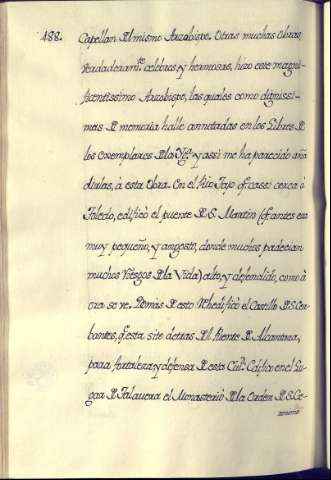 188.
Capellan del mismo Arzobispo. Otras muchas Obras,
verdaderam.te celebres, y hermosas, hizo este magni-
ficentissimo Arzobispo, las quales como dignissi-
mas de memoria hallo annotadas en los Libros de
los exemplares de la Ygl.a y assi me ha parecido aña
dirlas, à esta Obra. En el Rio Tajo, q.e casi cerca à
Toledo, edificò el puente de S. Martin (q.e antes era
muy pequeño, y angosto, donde muchos padecian
muchos riesgos de la Vida) alto, y defendido, como à
ora se ve. Demàs de esto Rehedificò el Castillo de S. Cer-
bantes, q.e esta sito detras del Puente de Alcantara,
para fortaleza, y defensa de esta Ciu.d Edificò en el Lu-
gar de Talavera el Monasterio de la Orden de S. Ge-
ronimo